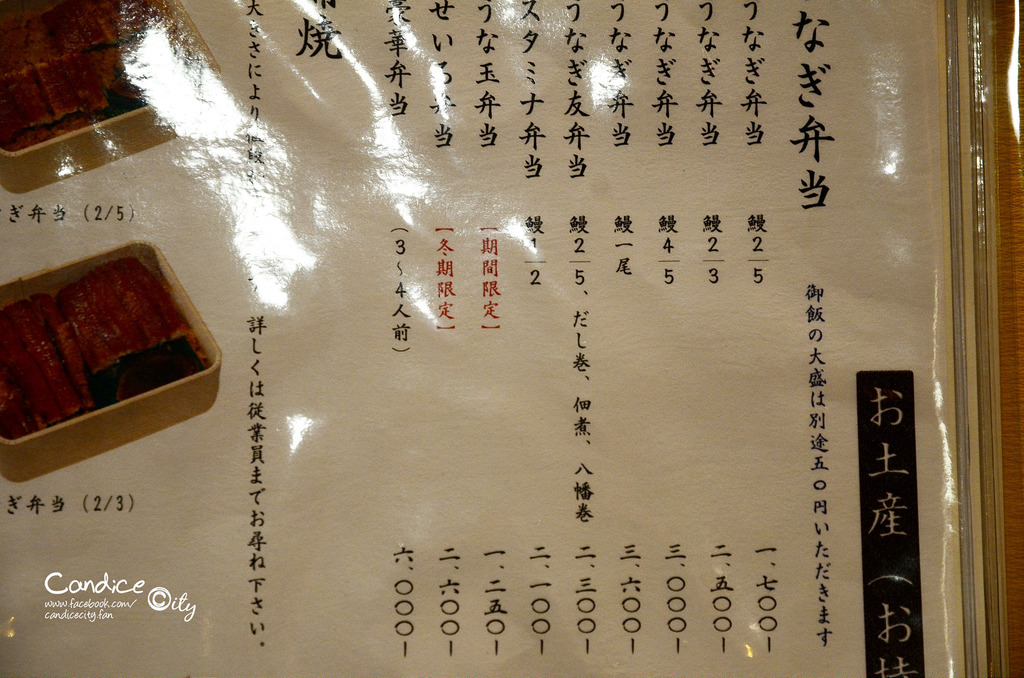 お土産（お持
なぎ弁当
御飯の大盛は別途五〇円いただきます
うなぎ弁当 鰻2/5 一、七〇〇ー
うなぎ弁当 鰻2/3 二、五〇〇ー
うなぎ弁当 鰻4/5 三、〇〇〇ー
うなぎ弁当 鰻一尾 三、六〇〇ー
うなぎ友弁当 鰻2/5、だし巻、佃煮、八幡巻 二、三〇〇ー
スタミナ弁当 鰻1/2 二、一〇〇ー
うな玉弁当 【期間限定】 一、二五〇ー
せいろ弁当 【冬期限定】 二、六〇〇ー
豪華弁当 （3～4人前） 六、〇〇〇ー
焼
大きさにより
詳しくは従業員までお尋ね下さい。
ぎ弁当（2/5）
ぎ弁当（2/3）
Candice City
www.facebook.com/
candicecity.fan